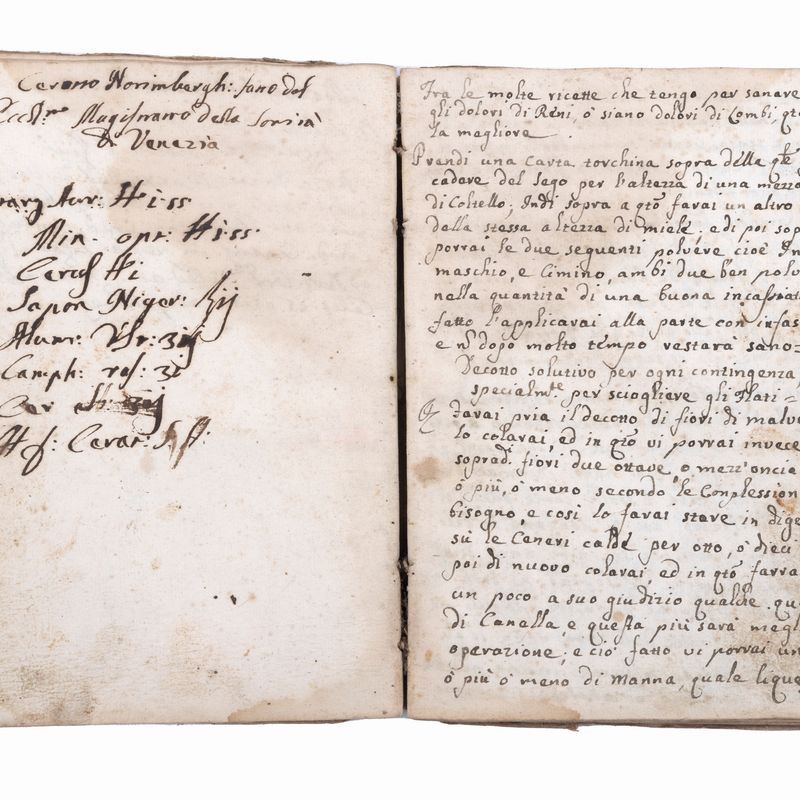 Cerono Norimbergh: sano del
Eccl.mo Magistrato della Sanità
di Venezia
Aur: ℔ i ss
Min. opt: ℔ i ss
Ceruss ℔ i
Sapon Niger: ℥ ij
Alum: Ust: ʒ ij
Camph: ras: ʒ
Cer
℔ f: Cerot: S. f:
Fra le molte ricette che tengo per sanare
gli dolori di Reni, ò siano dolori di Lombi, qtõ
la magliore.
Prendi una Carta torchina sopra della qle
cadare del Sego per l'altezza di una mezza
di Coltello; Indi sopra a qtõ farai un altro
della stessa altezza di miele, e di poi sop
porrai le due sequenti polvere cioè In
maschio, e Cimino, ambi due ben polv
nella quantità di una buona incassat
fatto l'applicarai alla parte con infas
e nõ dopo molto tempo restarà sano=
Decotto solutivo per ogni contingenza,
specialmte per sciogliere gli Flati=
Farai pria il decotto di fiori di malv
lo colarai, ed in qtõ vi porrai invece
sopradi fiori due ottave, o mezz'oncia
ò più, ò meno secondo le Conplession
bisogno, e così lo farai stare in dige
sù le Ceneri calde per otto, ò dieci
poi di nuovo colarai, ed in qtõ farra
un poco a suo giudizio qualche qu
di Canalla, e questa più sarà megl
operazione; e ciò fatto vi porrai un
ò più ò meno di Manna, quale lique